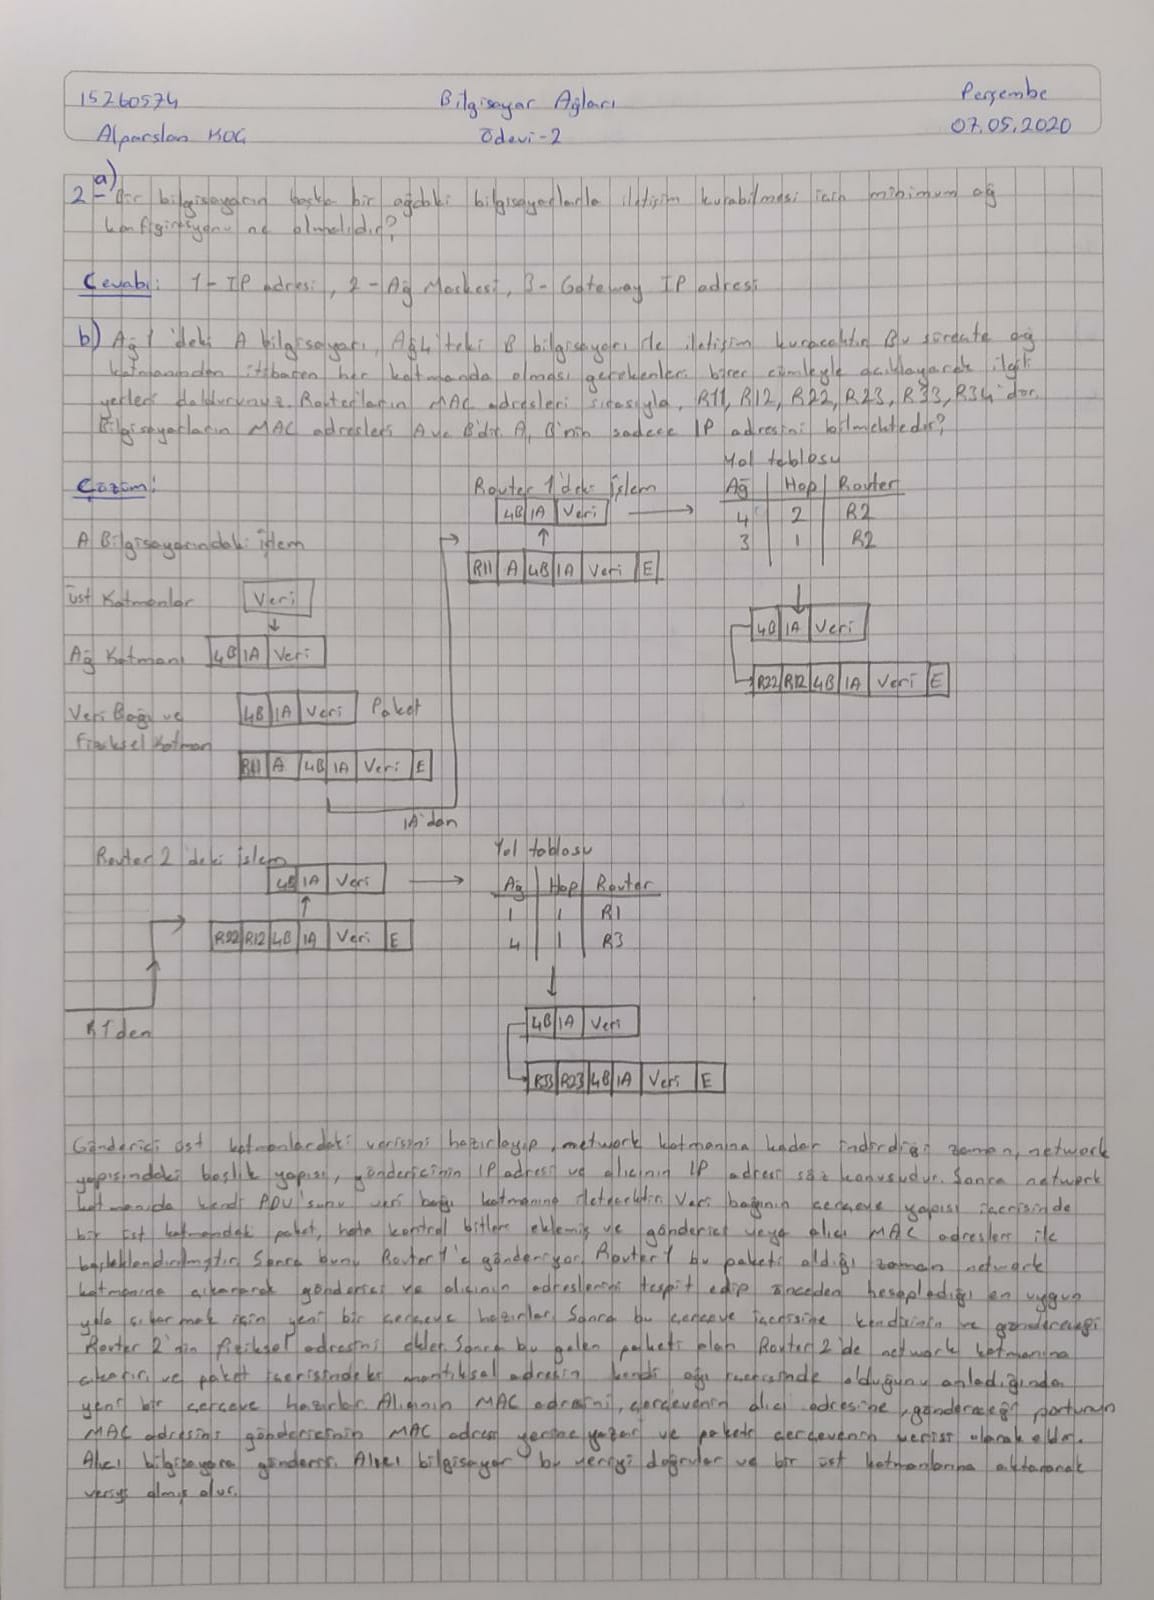 15260574
Bilgisayar Ağları
Perşembe
Alparslan KOÇ
Ödevi-2
07.05.2020
2-a) Bir bilgisayarın başka bir ağdaki bilgisayarlarla iletişim kurabilmesi için minimum ağ
konfigirasyonu ne olmalıdır?
Cevabı: 1- IP adresi, 2- Ağ Maskesi, 3- Gateway IP adresi
b) Ağ 1'deki A bilgisayarı, Ağ4'teki B bilgisayarı ile iletişim kuracaktır. Bu süreçte ağ
katmanından itibaren her katmanda olması gerekenleri birer cümleyle açıklayarak ilgili
yerleri doldurunuz. Routerların MAC adresleri sırasıyla, R11, R12, R22, R23, R33, R34'dür.
Bilgisayarların MAC adresleri A ve B'dir. A, B'nin sadece IP adresini bilmektedir?
Çözüm:
Router 1'deki İşlem
4B 1A Veri
R11 A 4B 1A Veri E
Yol tablosu
Ağ Hop Router
4 2 R2
3 1 R2
4B 1A Veri
R22 R12 4B 1A Veri E
A Bilgisayarındaki İşlem
Üst Katmanlar
Veri
Ağ Katmanı
4B 1A Veri
Veri Bağı ve
Fiziksel Katman
4B 1A Veri Paket
R11 A 4B 1A Veri E
1A'dan
Router 2'deki İşlem
4B 1A Veri
R22 R12 4B 1A Veri E
R1'den
Yol tablosu
Ağ Hop Router
1 1 R1
4 1 R3
4B 1A Veri
R33 R23 4B 1A Veri E
Gönderici üst katmanlardaki verisini hazırlayıp, network katmanına kadar indirdiği zaman, network
yapısındaki başlık yapısı, göndericinin IP adresi ve alıcının IP adresi söz konusudur. Sonra network
katmanıda kendi PDU'sunu veri bağı katmanına iletecektir. Veri bağının çerçeve yapısı içerisinde
bir üst katmandaki paket, hata kontrol bitleri eklemiş ve gönderici veya alıcı MAC adresleri ile
başlıklendirilmiştir. Sonra bunu Router1'e gönderiyor. Router1 bu paketi aldığı zaman network
katmanına çıkararak gönderici ve alıcının adreslerini tespit edip önceden hesapladığı en uygun
yola çıkarmak için yeni bir çerçeve hazırlar. Sonra bu çerçeve içerisine kendisinin ve göndereceği
Router 2'nin fiziksel adresini ekler. Sonra bu gelen paketi alan Router 2'de network katmanına
çıkarır ve paket içerisindeki mantıksal adresin kendi ağı içerisinde olduğunu anladığında
yeni bir çerçeve hazırlar. Alıcının MAC adresini, çerçevenin alıcı adresine, göndereceği portunun
MAC adresini göndericinin MAC adresi yerine yazar ve paketi çerçevenin verisi olarak ekler.
Alıcı bilgisayara gönderir. Alıcı bilgisayar bu veriyi doğrular ve bir üst katmanlarına aktararak
veriyi almış olur.